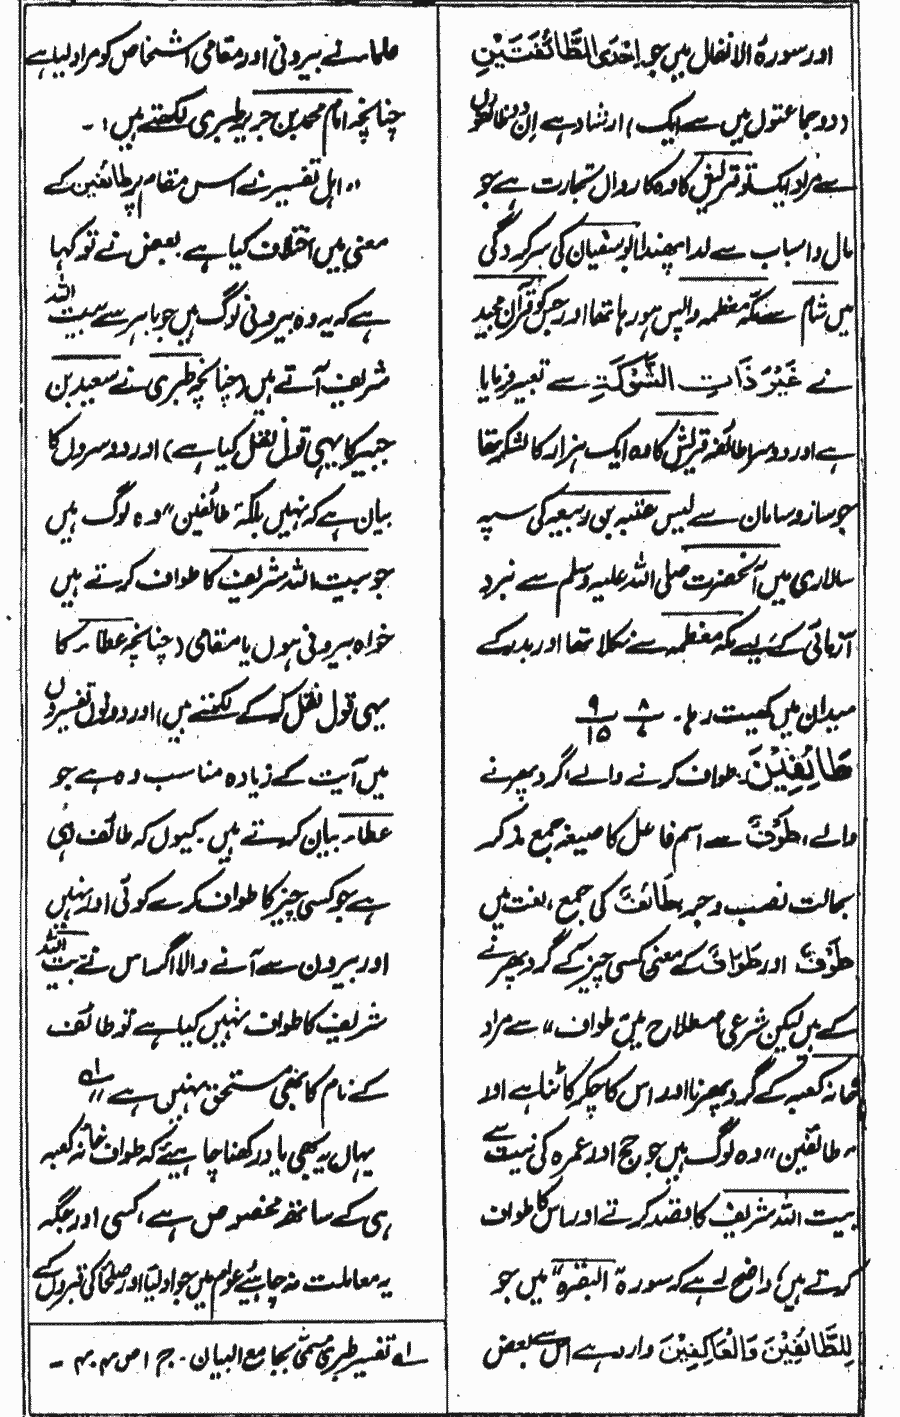 اور سورۃ الانفال میں جو اِحْدَی الطَّائِفَتَیْنِ
(دو جماعتوں میں سے ایک) ارشاد ہے اِن دو طائفوں
سے مراد ایک تو قریش کا وہ کاروانِ تجارت ہے جو
مال و اسباب سے لدا پھندا ابو سفیان کی سرکردگی
میں شام سے مکہ معظمہ واپس ہو رہا تھا اور جس کو قرآن مجید
نے غَیْرَ ذَاتِ الشَّوْكَةِ سے تعبیر فرمایا
ہے اور دوسرا طائفہ قریش کا وہ ایک ہزار کا لشکر تھا
جو ساز و سامان سے لیس عتبہ بن ربیعہ کی سپہ
سالاری میں آنحضرت صلی اللہ علیہ وسلم سے نبرد
آزمائی کے لیے مکہ معظمہ سے نکلا تھا اور بدر کے
میدان میں کھیت رہا۔ ۸/۴ ۹/۱۵
طَائِفِیْنَ: طواف کرنے والے، گرد پھرنے
والے، طَوْفٌ سے اسم فاعل کا صیغہ جمع مذکر
بحالت نصب و جر، طَائِفٌ کی جمع، لغت میں
طَوْفٌ اور طَوَافٌ کے معنی کسی چیز کے گرد پھرنے
کے ہیں لیکن شرعی اصطلاح میں "طواف" سے مراد
خانہ کعبہ کے گرد پھرنا اور اس کا چکر کاٹنا ہے اور
"طائفین" وہ لوگ ہیں جو حج اور عمرہ کی نیت سے
بیت اللہ شریف کا قصد کرتے اور اس کا طواف
کرتے ہیں، واضح رہے کہ سورۃ "البقرہ" میں جو
لِلطَّائِفِیْنَ وَالْعَاكِفِیْنَ وارد ہے اس سے بعض
علماء نے بیرونی اور مقامی اشخاص کو مراد لیا ہے
چنانچہ امام محمد بن جریر طبری لکھتے ہیں:۔
"اہل تفسیر نے اس مقام پر طائفین کے
معنی میں اختلاف کیا ہے بعض نے تو کہا
ہے کہ یہ وہ بیرونی لوگ ہیں جو باہر سے بیت اللہ
شریف آتے ہیں (چنانچہ طبری نے سعید بن
جبیر کا یہی قول نقل کیا ہے) اور دوسروں کا
بیان ہے کہ نہیں بلکہ "طائفین" وہ لوگ ہیں
جو بیت اللہ شریف کا طواف کرتے ہیں
خواہ بیرونی ہوں یا مقامی (چنانچہ عطاء کا
یہی قول نقل کر کے لکھتے ہیں) اور دونوں تفسیروں
میں آیت کے زیادہ مناسب وہ ہے جو
عطاء بیان کرتے ہیں۔ کیوں کہ طائف وہی
ہے جو کسی چیز کا طواف کرے کوئی اور نہیں
اور بیرون سے آنے والا اگر اس نے بیت اللہ
شریف کا طواف نہیں کیا ہے تو طائف
کے نام کا بھی مستحق نہیں ہے" لہ
یہاں یہ بھی یاد رکھنا چاہیئے کہ طواف خانہ کعبہ
ہی کے ساتھ مخصوص ہے، کسی اور جگہ
یہ معاملت نہ چاہئیے عوام میں جو اولیا اور صلحا کی قبروں کے
لہ تفسیر طبری مسمّی بجامع البیان۔ ج ۱ ص ۴۰۴۔